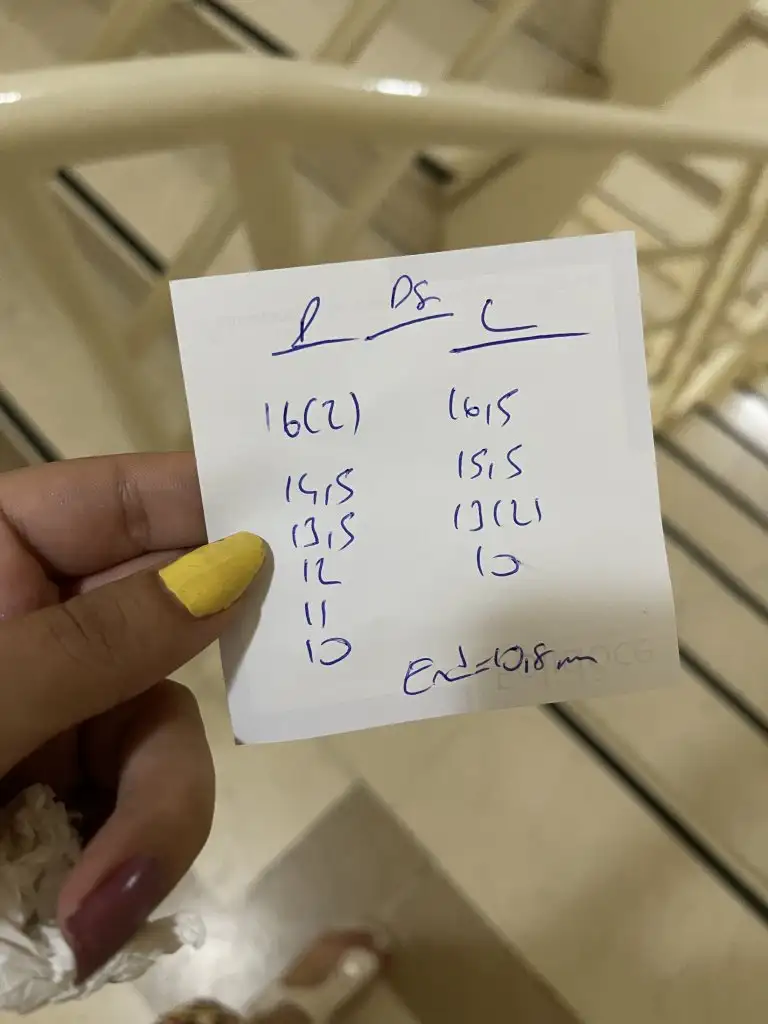 R D8 L
16(2) 16,5
14,5 15,5
13,5 13(2)
12 10
11
10
End=10,8 mm